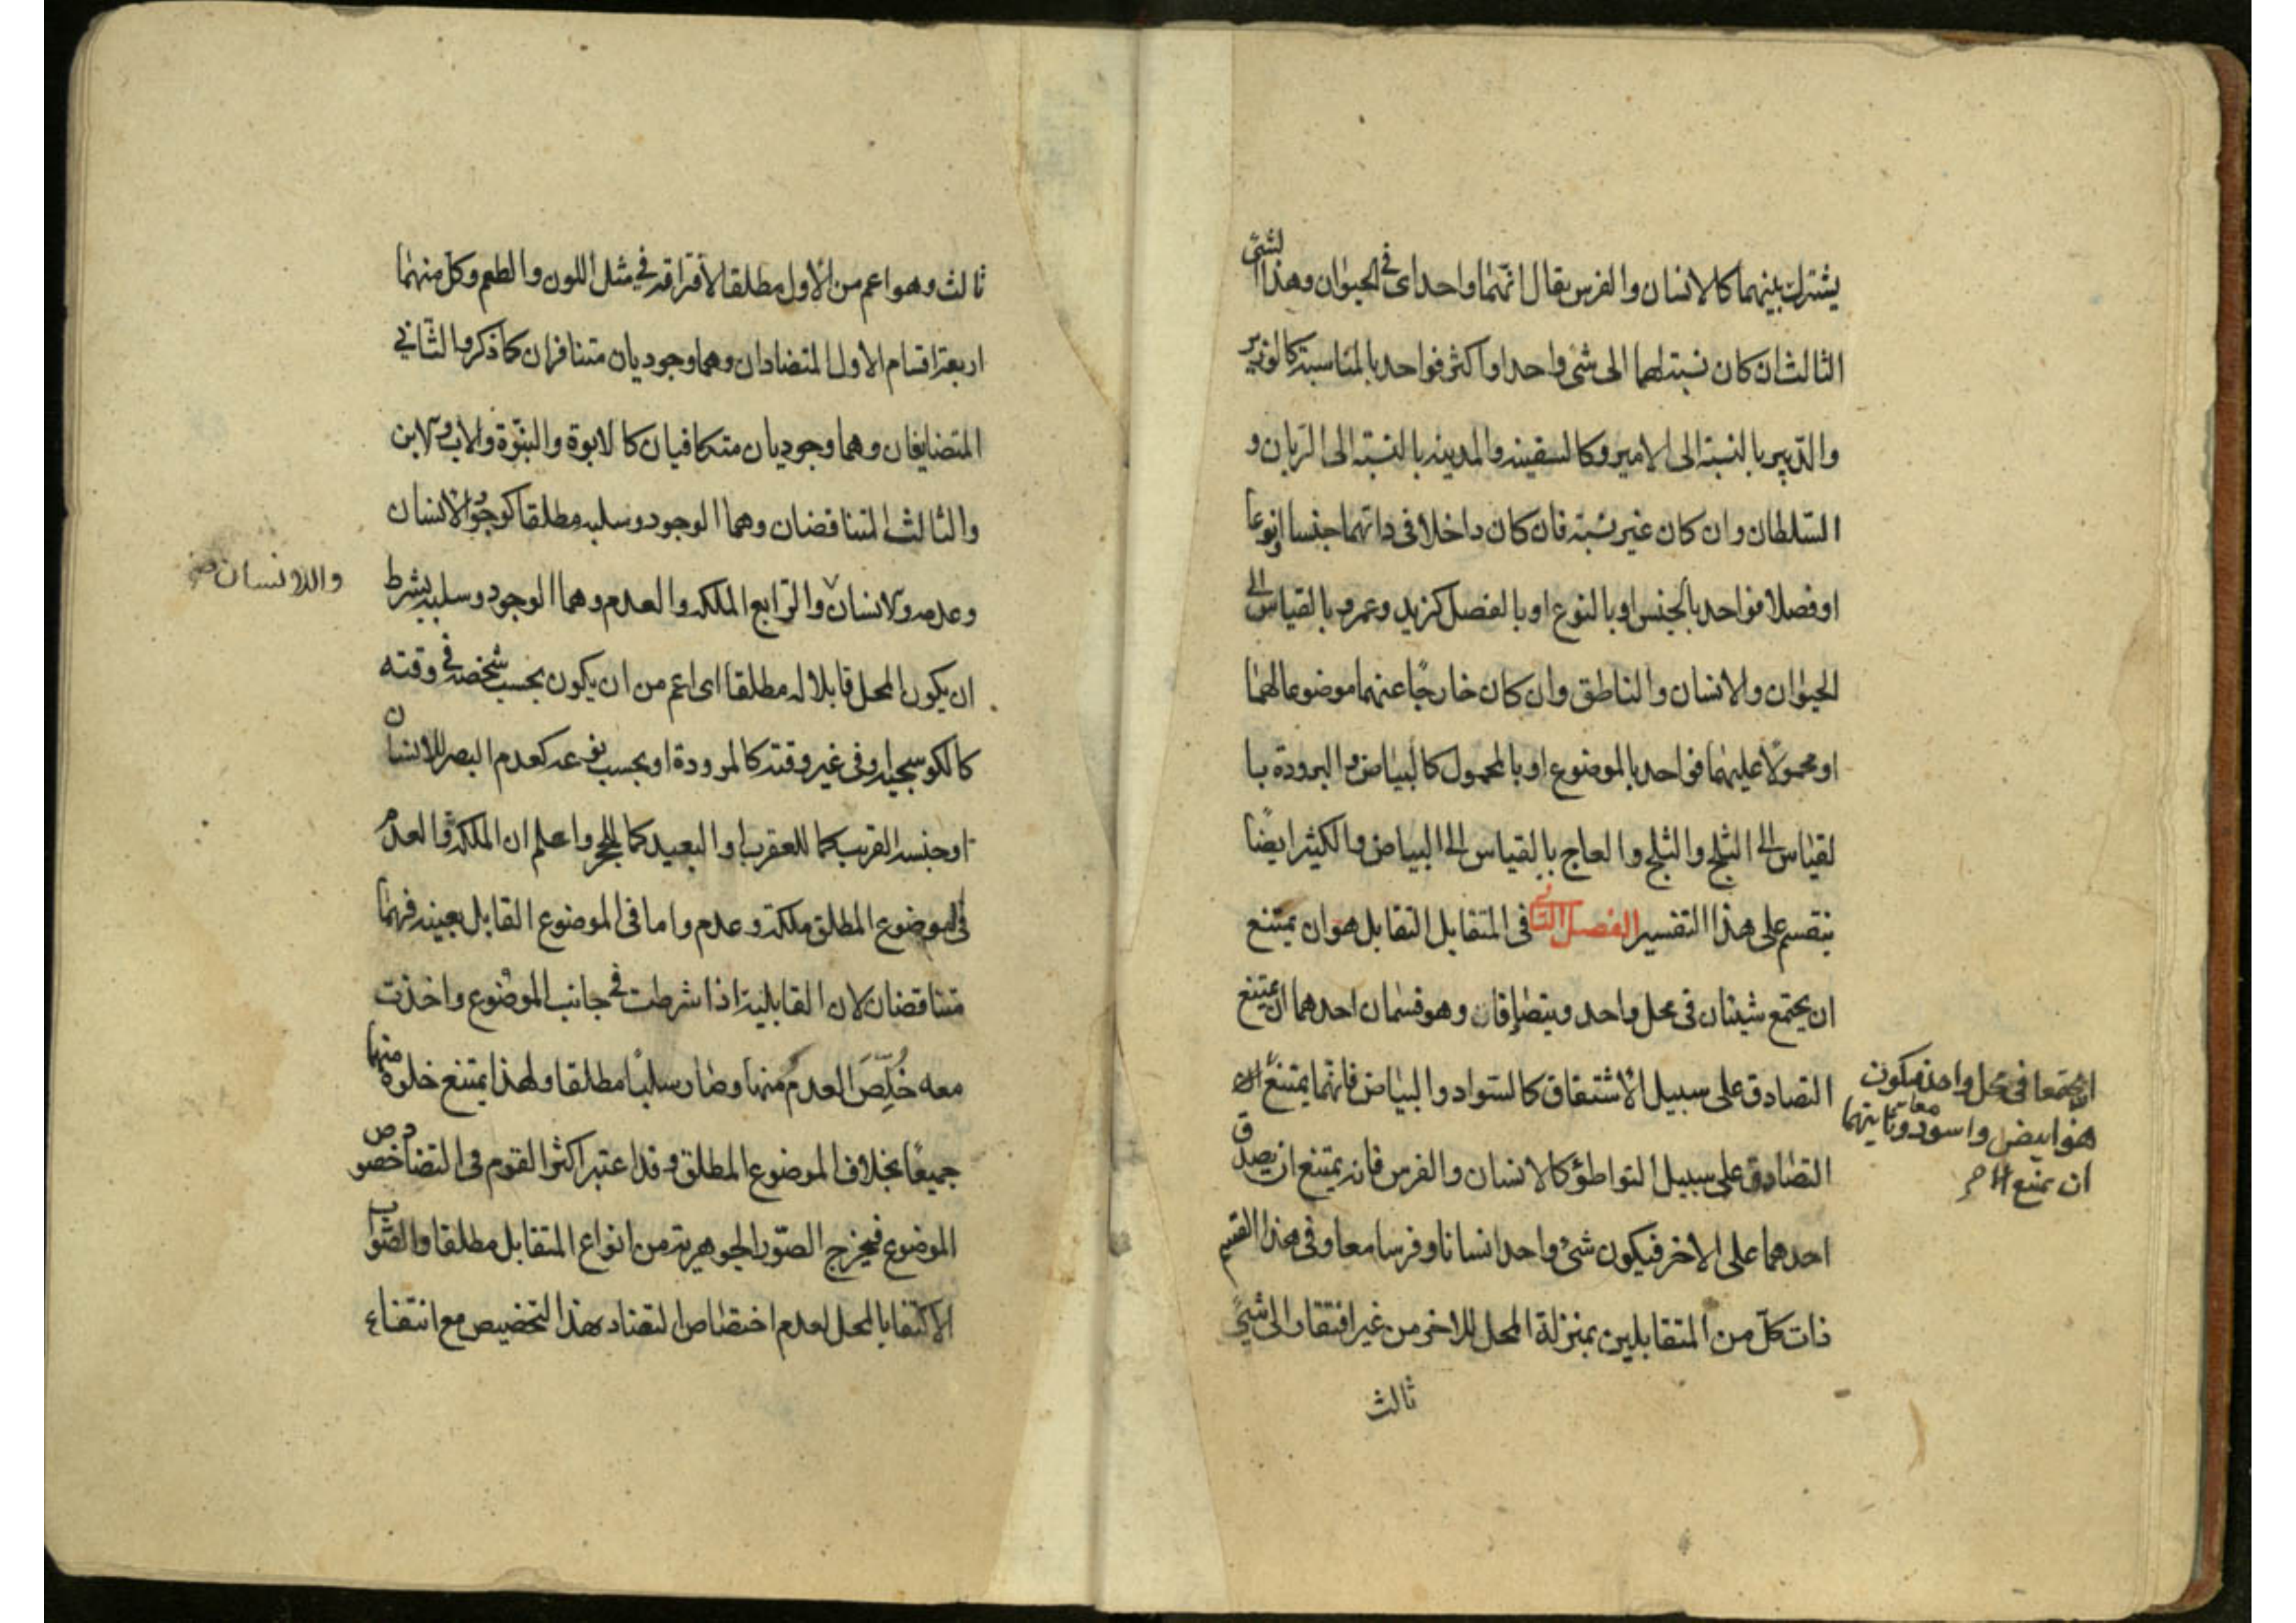 يشترك بينهما كالانسان والفرس يقال انهما واحد اى فى الحيوان وهذا الشئ
الثالث ان كان نسبتهما الى شئ واحد او اكثر فواحد بالمناسبة كالوزير
والدبير بالنسبة الى الامير وكالسفينه والمدينه بالنسبة الى الربان و
السلطان وان كان غير نسبة فان كان داخلا فى ذاتهما جنسا او نوعا
او فصلا فواحد بالجنس او بالنوع او بالفصل كزيد وعمرو بالقياس الى
الحيوان والانسان والناطق وان كان خارجًا عنهما موضوعا لهما
او محمولًا عليهما فواحد بالموضوع او بالمحمول كالبياض والبرودة با
لقياس الى الثلج والثلج والعاج بالقياس الى البياض والكثير ايضًا
ينقسم على هذا التفسير الفصل الثانى فى المتقابل التقابل هو ان يمتنع
ان يجتمع شيئان فى محل واحد ويتضايفان وهو قسمان احدهما ان يمتنع
التصادق على سبيل الاشتقاق كالسواد والبياض فانهما يمتنع ان
التصادق على سبيل التواطؤ كالانسان والفرس فانه يمتنع ان يصدق
احدهما على الاخر فيكون شئ واحد انسانا وفرسا معا وفى هذا القسم
ذات كلّ من المتقابلين بمنزلة المحل للاخر من غير افتقار الى شئ
ثالث
يجتمعا فى محل واحد فيكون
هو ابيض واسود معا وثانيهما
ان يمتنع
ثالث وهو اعم من الاول مطلقا لافتراقه فى مثل اللون والطعم وكل منهما
اربعة اقسام الاول المتضادان وهما وجوديان متنافران كما ذكر والثانى
المتضايفان وهما وجوديان متكافيان كالابوة والبنوّة والاب والابن
والثالث المتناقضان وهما الوجود وسلبه مطلقا كوجود الانسان
وعدمه والانسان والرابع الملكه والعدم وهما الوجود وسلبه بشرط
والاانسان
ان يكون المحل قابلا له مطلقا اى اعم من ان يكون بحسب شخصه فى وقته
كالكوسجيه او فى غير وقته كالمرودة او بحسب نوعه كعدم البصر للانسان
او جنسه القريب كما للعقرب او البعيد كما للحجر واعلم ان الملكة والعدم
فى الموضوع المطلق ملكة وعدم واما فى الموضوع القابل بعينه فهما
متناقضان لان القابلية اذا شرطت فى جانب الموضوع واخذت
معه خُلِّصَ العدم منها وصار سلبًا مطلقا ولهذا يمتنع خلوه منهما
جميعًا بخلاف الموضوع المطلق وقد اعتبر اكثر القوم فى التضاد خصوص
الموضوع فيخرج الصّور الجوهرية من انواع المتقابل مطلقا والصّواب
الاكتفا بالمحل لعدم اختصاص التضاد بهذا التخصيص مع انتفاء